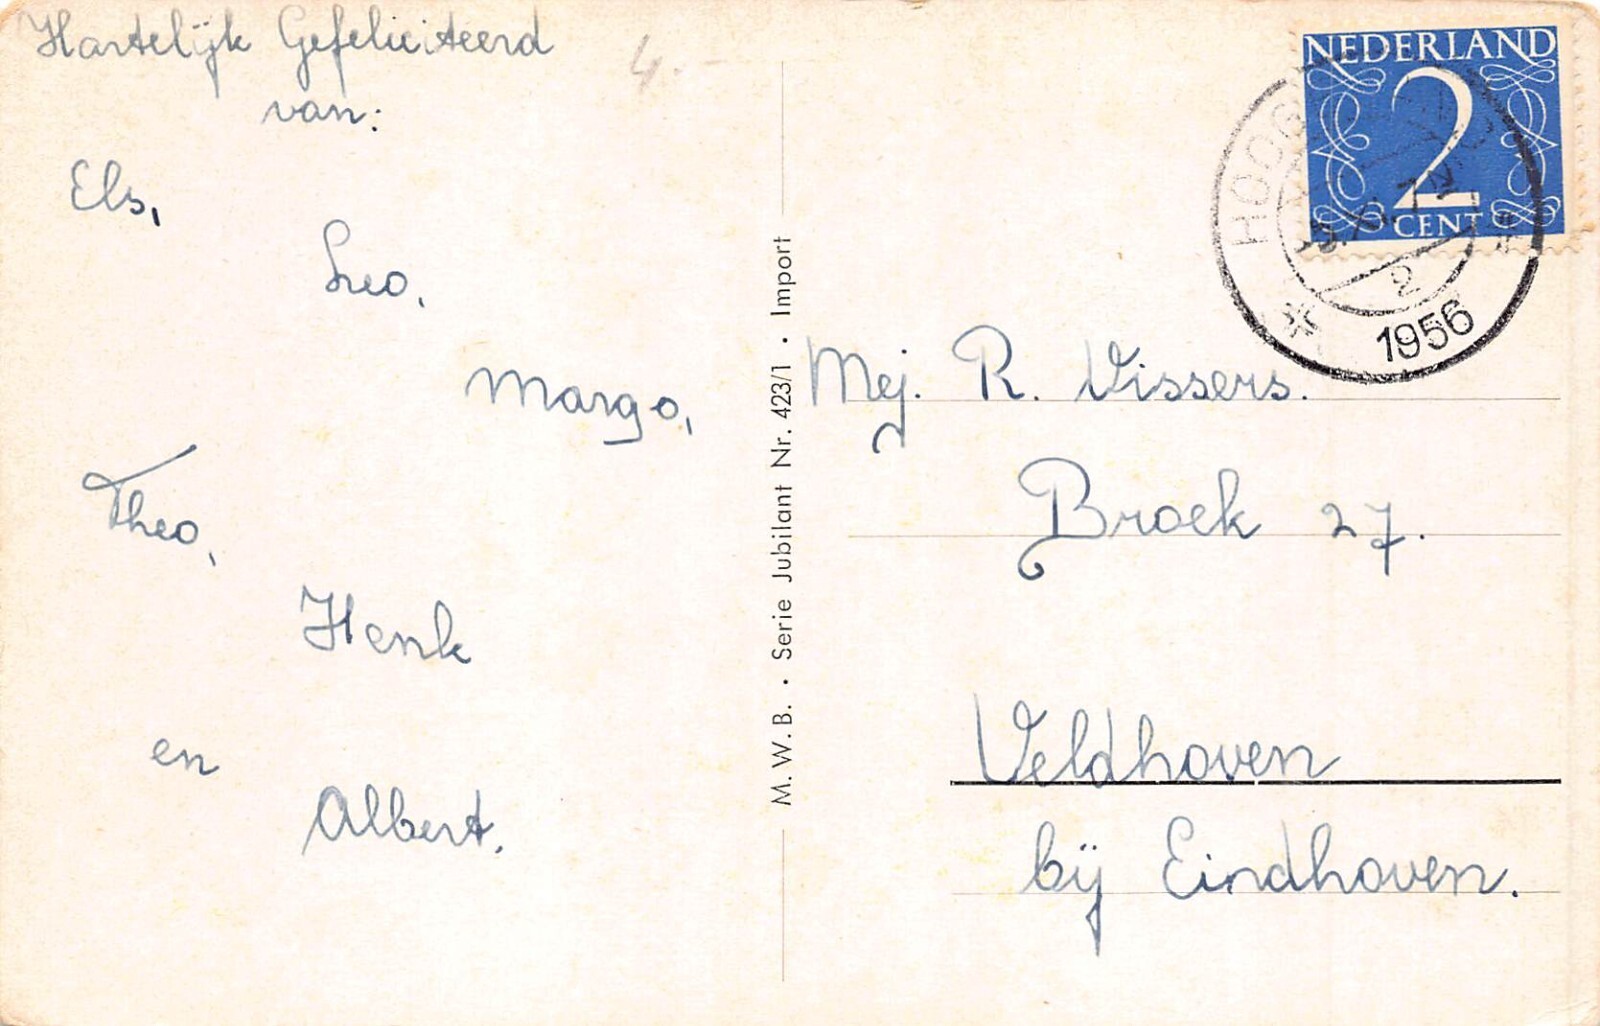 Hartelijk Gefeliciteerd
van:
Els,
Leo,
Margo,
Theo,
Henk
en
Albert.
4.-
M.W.B. • Serie Jubilant Nr. 423/1 • Import
NEDERLAND
2
CENT
1956
Mej. R. Vissers.
Broek 27.
Veldhoven
bij Eindhoven.